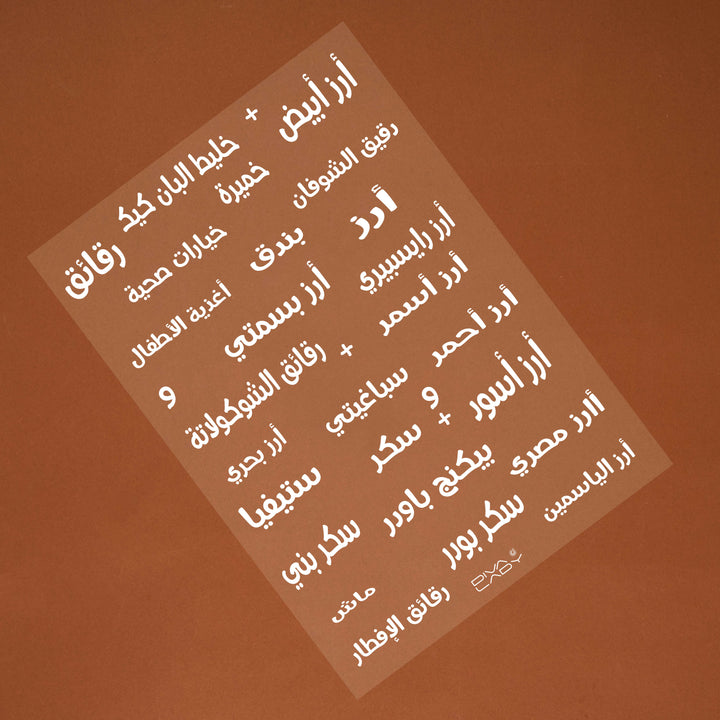 أرز أبيض
+
خليط البان كيك
رقيق الشوفان
خميرة
أرز
بندق
خيارات صحية
رقائق
أرز رايسبيري
أرز بسمتي
أغذية الأطفال
أرز أسمر
+
رقائق الشوكولاتة
و
أرز أحمر
سباغيتي
أرز أسور
و
+
سكر
أرز بحري
أارز مصري
بيكنج باودر
ستيفيا
أرز الياسمين
سكر بودر
سكر بني
ماش
رقائق الإفطار
DIVA LADY